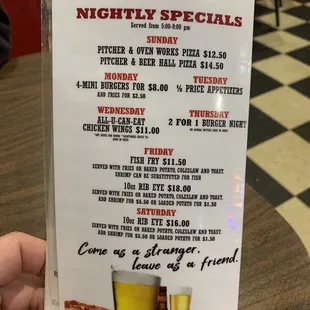 NIGHTLY SPECIALS
Served from 5:00-9:00 pm
SUNDAY
PITCHER & OVEN WORKS PIZZA $12.50
PITCHER & BEER HALL PIZZA $14.50
MONDAY
4-MINI BURGERS FOR $8.00
ADD FRIES FOR $2.50
TUESDAY
½ PRICE APPETIZERS
WEDNESDAY
ALL-U-CAN-EAT
CHICKEN WINGS $11.00
THURSDAY
2 FOR 1 BURGER NIGHT
FRIDAY
FISH FRY $11.50
SERVED WITH FRIES OR BAKED POTATO, COLESLAW AND TOAST.
SHRIMP CAN BE SUBSTITUTED FOR FISH
10oz RIB EYE $18.00
SERVED WITH FRIES OR BAKED POTATO, COLESLAW AND TOAST.
ADD SHRIMP FOR $5.50 OR LOADED POTATO FOR $1.50
SATURDAY
10oz RIB EYE $16.00
SERVED WITH FRIES OR BAKED POTATO, COLESLAW AND TOAST.
ADD SHRIMP FOR $5.50 OR LOADED POTATO FOR $1.50.
Come as a stranger,
leave as a friend.